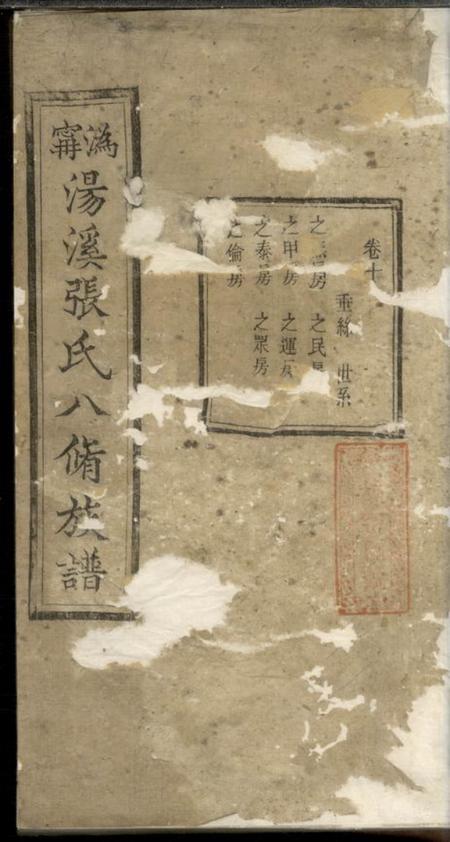 溈甯
湯溪張氏八脩族譜
卷十
垂絲 世系
之房 之民
之甲房 之運房
之泰房 之眾房
之倫房